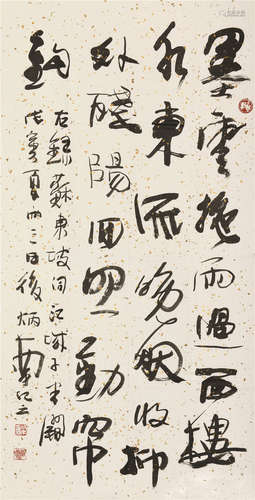 墨雲拖雨過西樓
水東流晚烟收柳
外殘陽回照動帘
鉤
右錄蘇東坡詞江城子半闋
戊寅夏日後炳